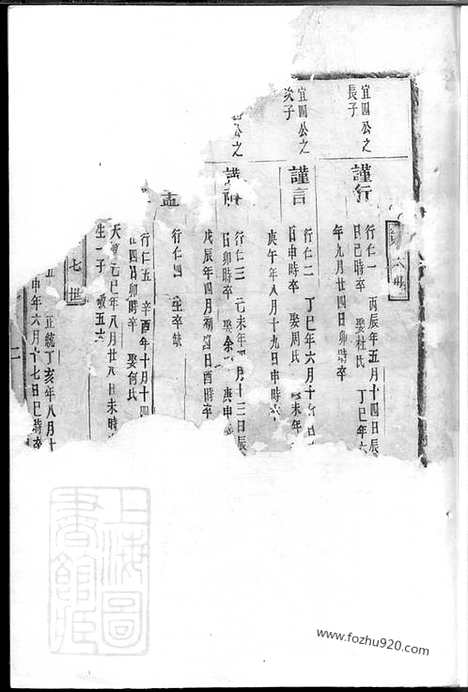 宜四公之
長子
謹行
行仁一 丙辰年五月十四日辰
日巳時卒 娶杜氏 丁巳年六
年九月廿四日卯時卒
宜四公之
次子
謹言
行仁二 丁巳年六月十
日申時卒 娶周氏 未年
庚午年八月十九日申時
公之
行仁三 己未年 月十三日辰
日卯時卒 娶余 庚申
戊辰年四月 日酉時卒
行仁四 生卒缺
行仁五 辛酉年十月十四
四日卯時卒 娶何氏
天 己巳年八月廿八日未時
生一子 五
七世
五 正統丁亥年八月十
申年六月十七日巳時卒
上海圖
書館藏
www.fozhu920.com